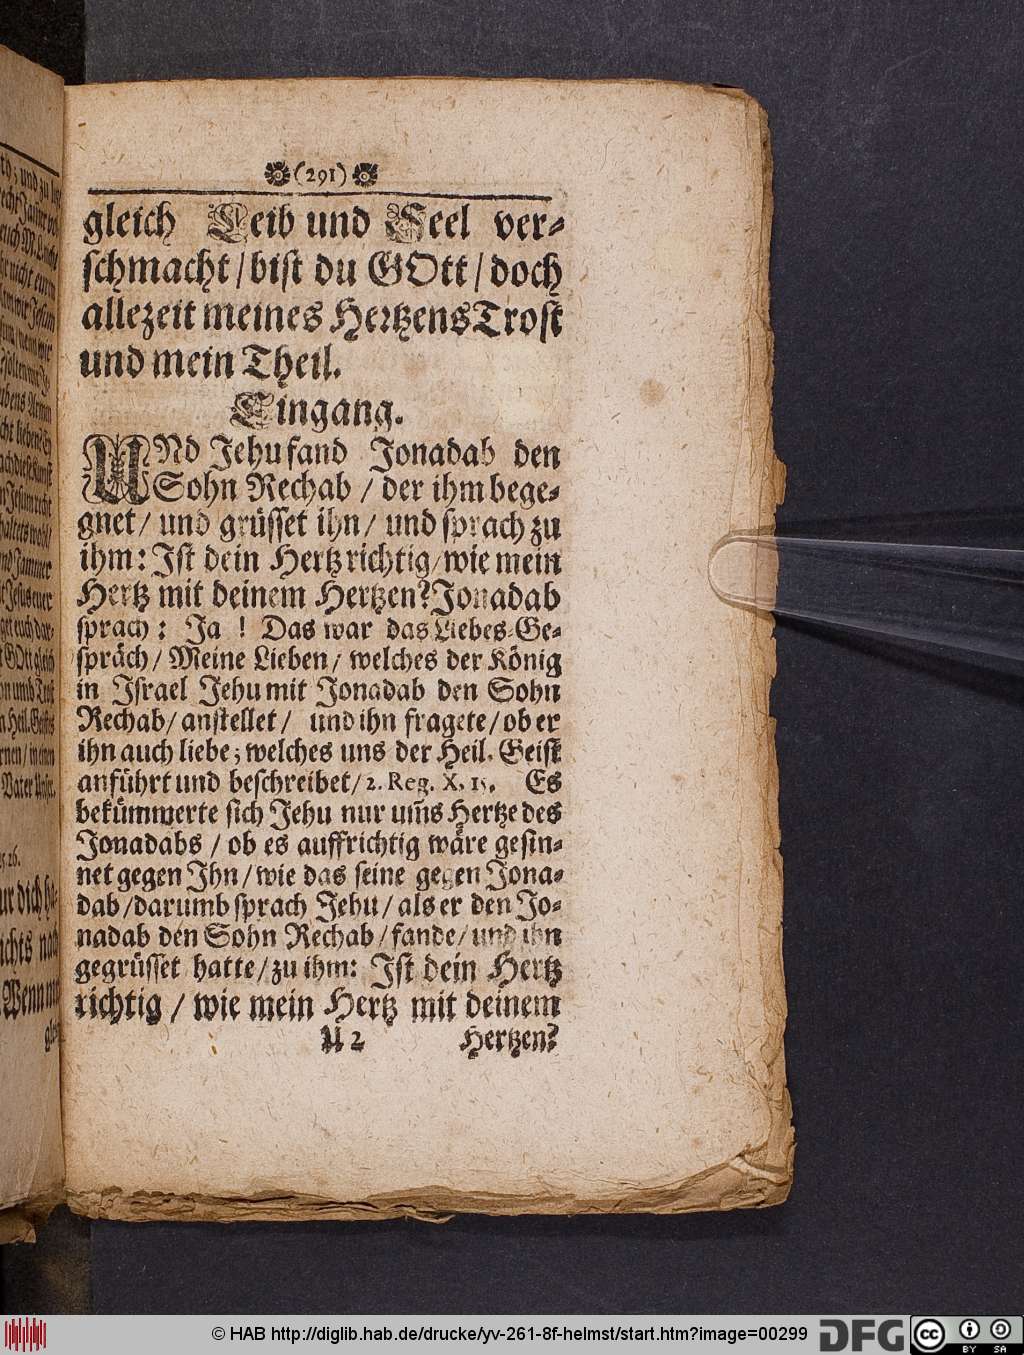 (291)
gleich Leib und Seel ver-
schmacht/bist du GOtt/doch
allezeit meines Hertzens Trost
und mein Theil.
Eingang.
UNd Jehu fand Jonadab den
Sohn Rechab / der ihm bege-
gnet/ und grüsset ihn/ und sprach zu
ihm: Ist dein Hertz richtig/wie mein
Hertz mit deinem Hertzen? Jonadab
sprach: Ja ! Das war das Liebes-Ge-
spräch/ Meine Lieben/ welches der König
in Israel Jehu mit Jonadab den Sohn
Rechab/ anstellet/ und ihn fragete/ob er
ihn auch liebe; welches uns der Heil. Geist
anführt und beschreibet/2. Reg. X, 15. Es
bekümmerte sich Jehu nur um̃s Hertze des
Jonadabs / ob es auffrichtig wäre gesin-
net gegen Ihn/wie das seine gegen Jona-
dab/darumb sprach Jehu/als er den Jo-
nadab den Sohn Rechab/fande/und ihn
gegrüsset hatte/zu ihm: Ist dein Hertz
richtig / wie mein Hertz mit deinem
U 2 Hertzen?
© HAB http://diglib.hab.de/drucke/yv-261-8f-helmst/start.htm?image=00299
DFG
cc BY SA